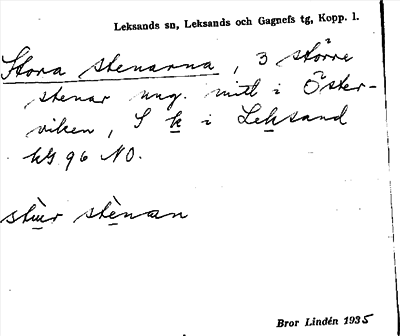 Leksands sn, Leksands och Gagnefs tg, Kopp. l.
Stora stenarna, 3 större
stenar ung. mitt i Öster-
viken, S k i Leksand
kbl 96 NO.
stèn stènan
Bror Lindén 1935